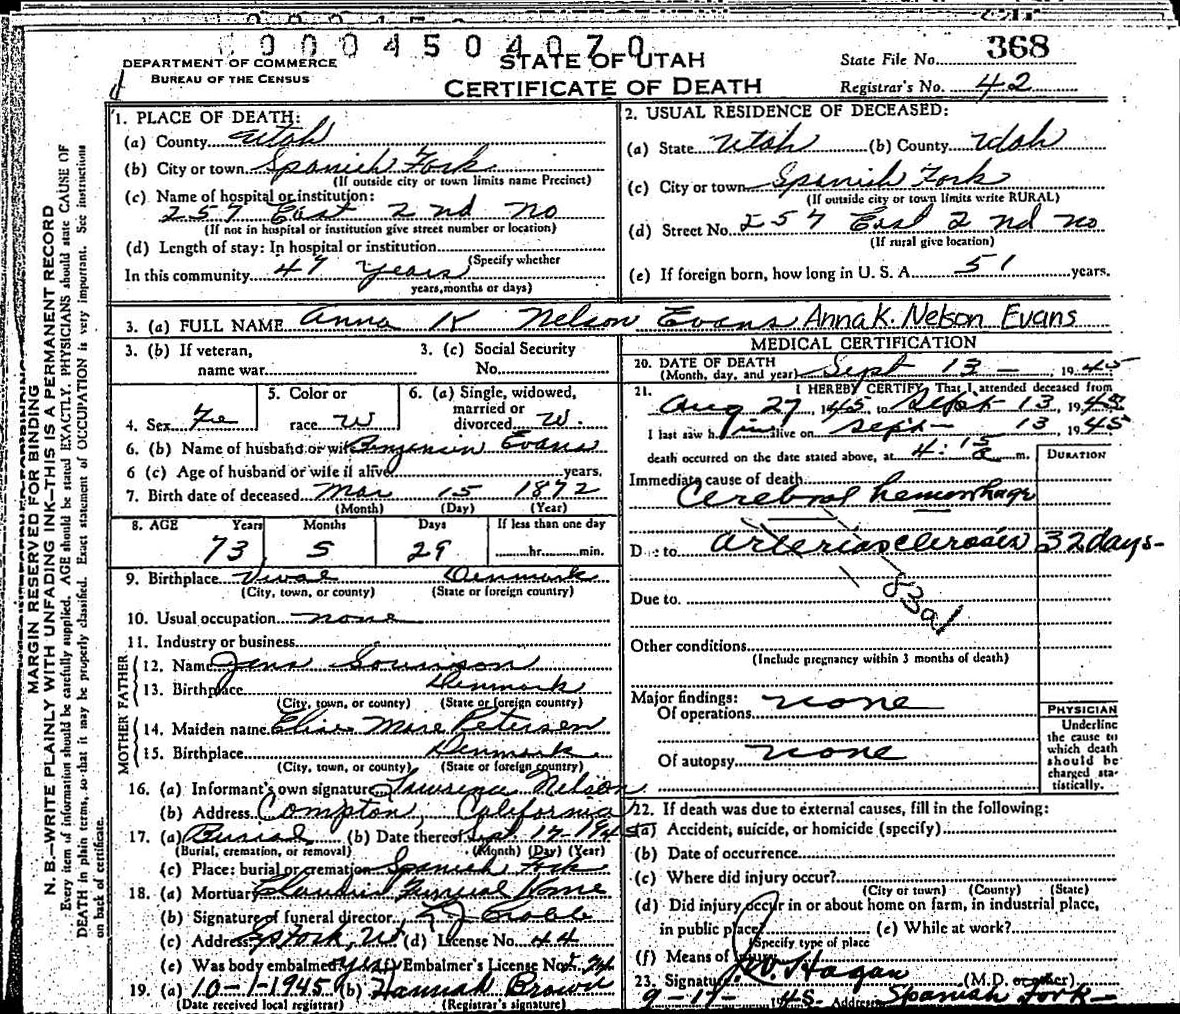 0004504070
DEPARTMENT OF COMMERCE
BUREAU OF THE CENSUS
STATE OF UTAH
CERTIFICATE OF DEATH
State File No. 368
Registrar's No. 42
MARGIN RESERVED FOR BINDING
N. B.—WRITE PLAINLY WITH UNFADING INK—THIS IS A PERMANENT RECORD
Every item of information should be carefully supplied. AGE should be stated EXACTLY. PHYSICIANS should state CAUSE OF
DEATH in plain terms, so that it may be properly classified. Exact statement of OCCUPATION is very important. See instructions
on back of certificate.
1. PLACE OF DEATH:
(a) County Utah
(b) City or town Spanish Fork
(If outside city or town limits name Precinct)
(c) Name of hospital or institution:
257 East 2nd No
(If not in hospital or institution give street number or location)
(d) Length of stay: In hospital or institution
(Specify whether
In this community 47 years
years, months or days)
2. USUAL RESIDENCE OF DECEASED:
(a) State Utah (b) County Utah
(c) City or town Spanish Fork
(If outside city or town limits write RURAL)
(d) Street No. 257 East 2nd no
(If rural give location)
(e) If foreign born, how long in U. S. A. 51 years.
3. (a) FULL NAME Anna K Nelson Evans Anna K. Nelson Evans
3. (b) If veteran,
name war
3. (c) Social Security
No.
4. Sex Fe
5. Color or
race W
6. (a) Single, widowed,
married or
divorced W.
6. (b) Name of husband or wife Benjamin Evans
6 (c) Age of husband or wife if alive years.
7. Birth date of deceased Mar 15 1872
(Month) (Day) (Year)
8. AGE Years Months Days If less than one day
73 5 29 hr. min.
9. Birthplace Denmark
(City, town, or county) (State or foreign country)
10. Usual occupation none
11. Industry or business
FATHER
12. Name Jens
13. Birthplace Denmark
(City, town, or county) (State or foreign country)
MOTHER
14. Maiden name Petersen
15. Birthplace Denmark
(City, town, or county) (State or foreign country)
16. (a) Informant's own signature Lawrence Nelson
(b) Address Compton, California
17. (a) Burial (b) Date thereof Sept. 17-1945
(Burial, cremation, or removal) (Month) (Day) (Year)
(c) Place: burial or cremation Spanish Fork
18. (a) Mortuary Claudin Funeral Home
(b) Signature of funeral director
(c) Address S Fork, Ut (d) License No. 44
(e) Was body embalmed yes Embalmer's License No.
19. (a) 10-1-1945 (b) Hannah Brown
(Date received local registrar) (Registrar's signature)
MEDICAL CERTIFICATION
20. DATE OF DEATH
(Month, day, and year) Sept 13 - , 1945
21. I HEREBY CERTIFY, That I attended deceased from
Aug 27, 1945, to Sept 13, 1945
I last saw h im alive on Sept- 13, 1945
death occurred on the date stated above, at 4:15 a m.
DURATION
Immediate cause of death
Cerebral hemorrhage
Due to arteriosclerosis 32 days-
83a1
Due to
Other conditions
(Include pregnancy within 3 months of death)
Major findings:
Of operations none
Of autopsy none
PHYSICIAN
Underline
the cause to
which death
should be
charged sta-
tistically.
22. If death was due to external causes, fill in the following:
(a) Accident, suicide, or homicide (specify)
(b) Date of occurrence
(c) Where did injury occur?
(City or town) (County) (State)
(d) Did injury occur in or about home on farm, in industrial place,
in public place? (e) While at work?
(Specify type of place
(f) Means of injury
23. Signature Hagan (M.D. or other)
9-17- 1945 Address Spanish Fork-